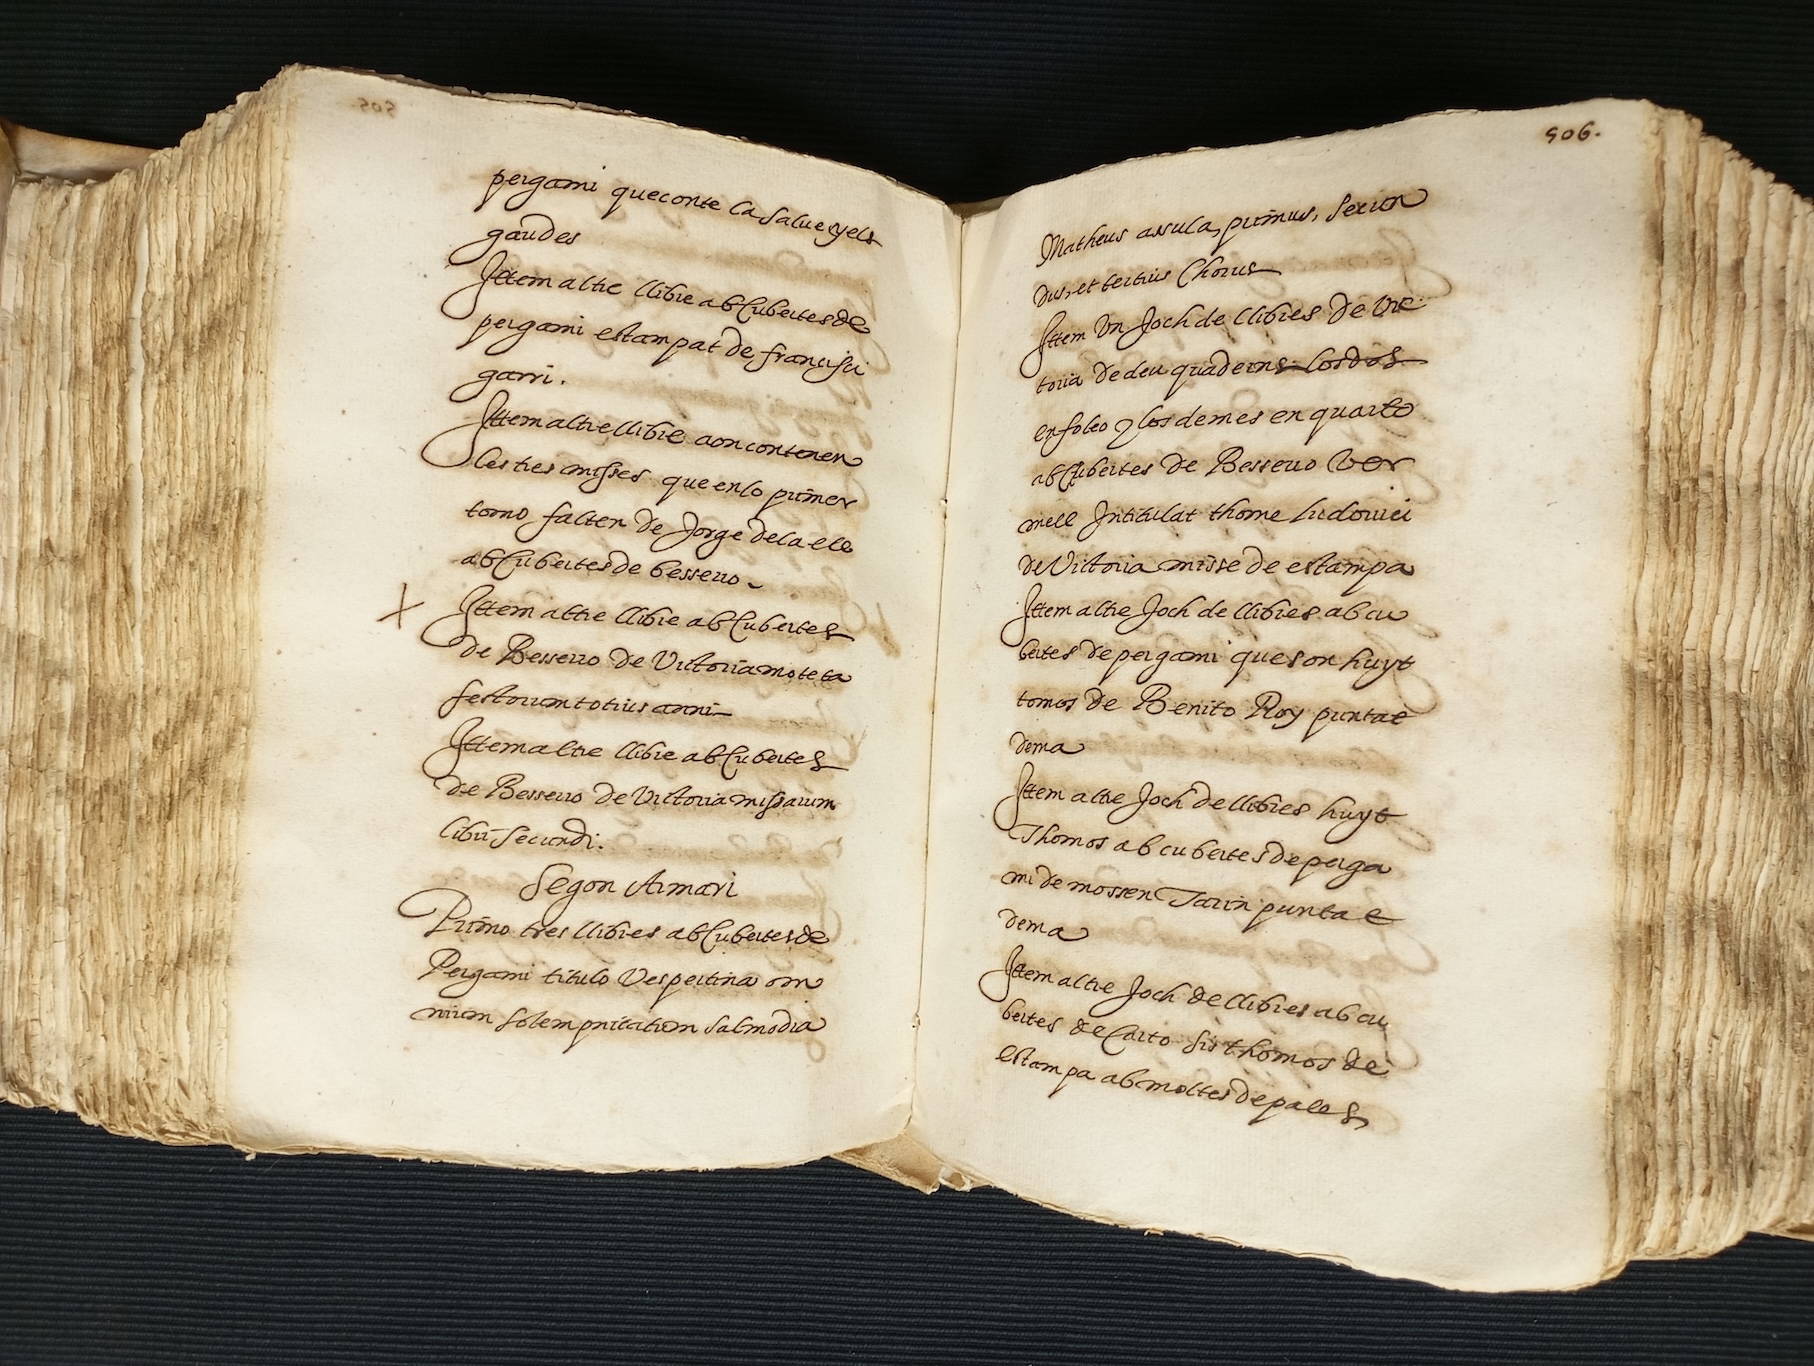 pergami que conte la Salve y els
gaudes
Ittem altre llibre ab Cubertes de
pergami estampat de francisci
garri.
Ittem altre llibre aon contenen
les tres misses que en lo primer
tomo falten de Jorge de la ele
ab Cubertes de besserro
X Ittem altre llibre ab Cubertes
de Besserro de Victoria moteta
festorum totius anni
Ittem altre llibre ab Cubertes
de Besserro de Victoria missarum
libri Secundi.
Segon Armari
Primo tres llibres ab Cubertes de
Pergami titulo Vespertina om
nium solempnitatum Salmodia
506.
Matheus assula, primus, Secun
dus, et tertius Chorus
Ittem Un Joch de llibres de Vic
toria de deu quaderns los dos
en foleo y los demes en quarto
ab Cubertes de Besserro ver
mell Intitulat thome Ludovici
de Victoria misse de estampa
Ittem altre Joch de llibres ab cu
bertes de pergami que son huyt
tomos de Benito Roy puntat
de ma
Ittem altre Joch de llibres huyt
Thomos ab cubertes de perga
mi de mossen Tarin puntat
de ma
Ittem altre Joch de llibres ab cu
bertes de Carto sis thomos de
estampa ab moltes de pales